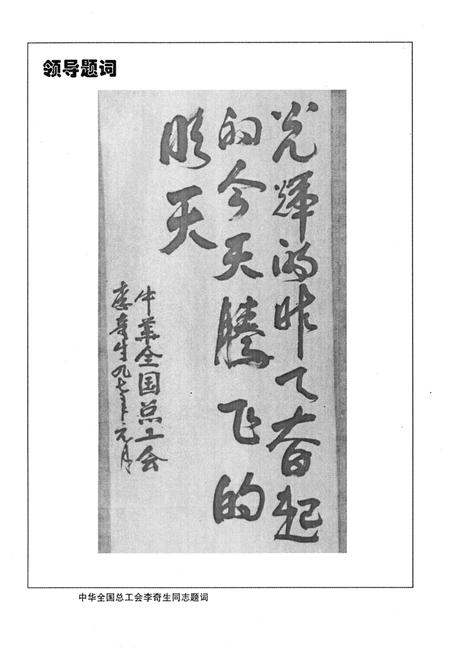 领导题词
光輝的昨天奋起
的今天腾飞的
明天
中華全国总工会
李奇生九七年元月
中华全国总工会李奇生同志题词